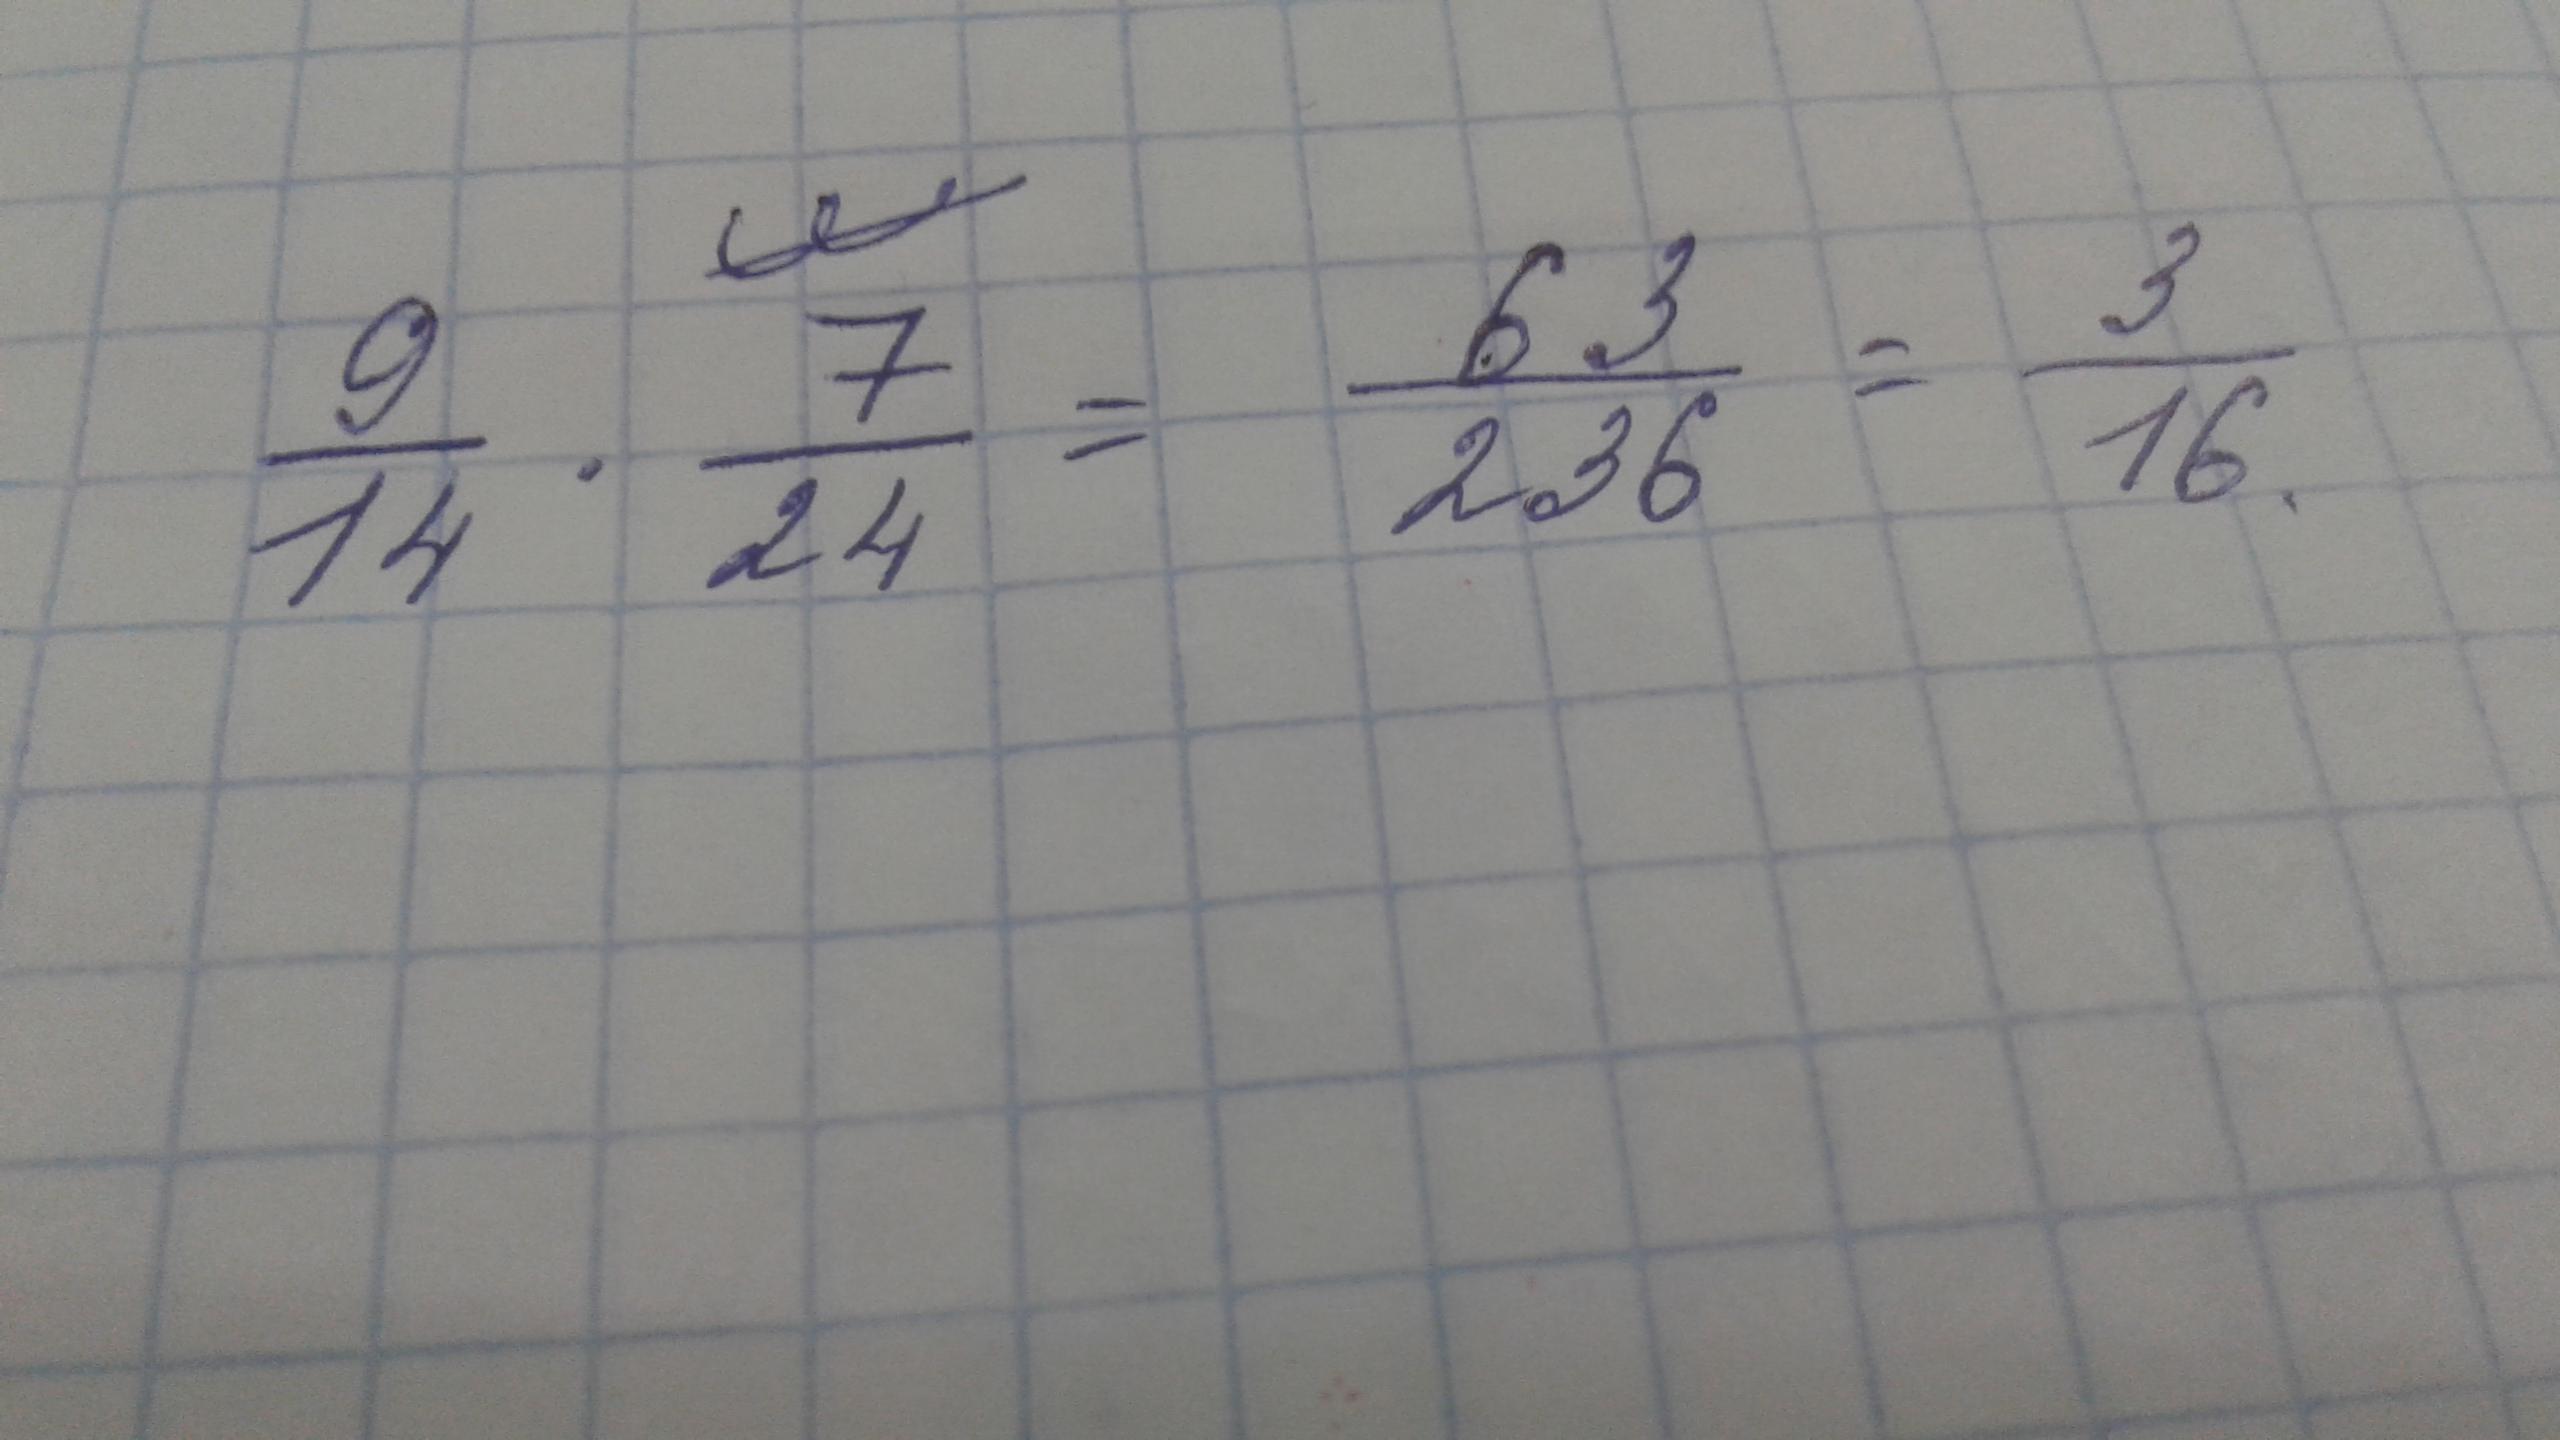 9/14 · 7/24 = 63/236 = 3/16.